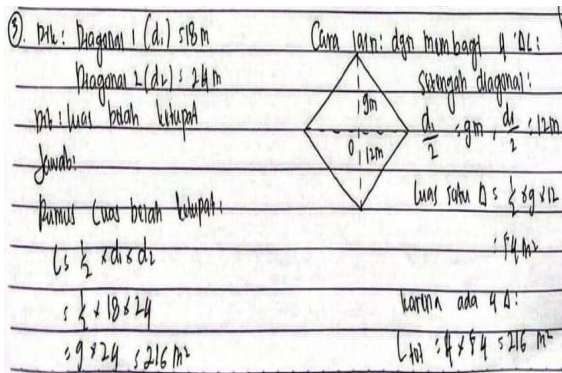 ③. Dik: Diagonal 1 (d₁) = 18 m
Diagonal 2 (d₂) = 24 m
Dit: luas belah ketupat
Jawab:
Rumus luas belah ketupat:
L = ½ × d₁ × d₂
= ½ × 18 × 24
= 9 × 24 = 216 m²
Cara lain: dgn membagi 4 Δ:
Setengah diagonal:
d₁/2 = 9m, d₂/2 = 12m
9m
0 12m
Luas satu Δ = ½ × 9 × 12
= 54 m²
karena ada 4 Δ:
L tot = 4 × 54 = 216 m²